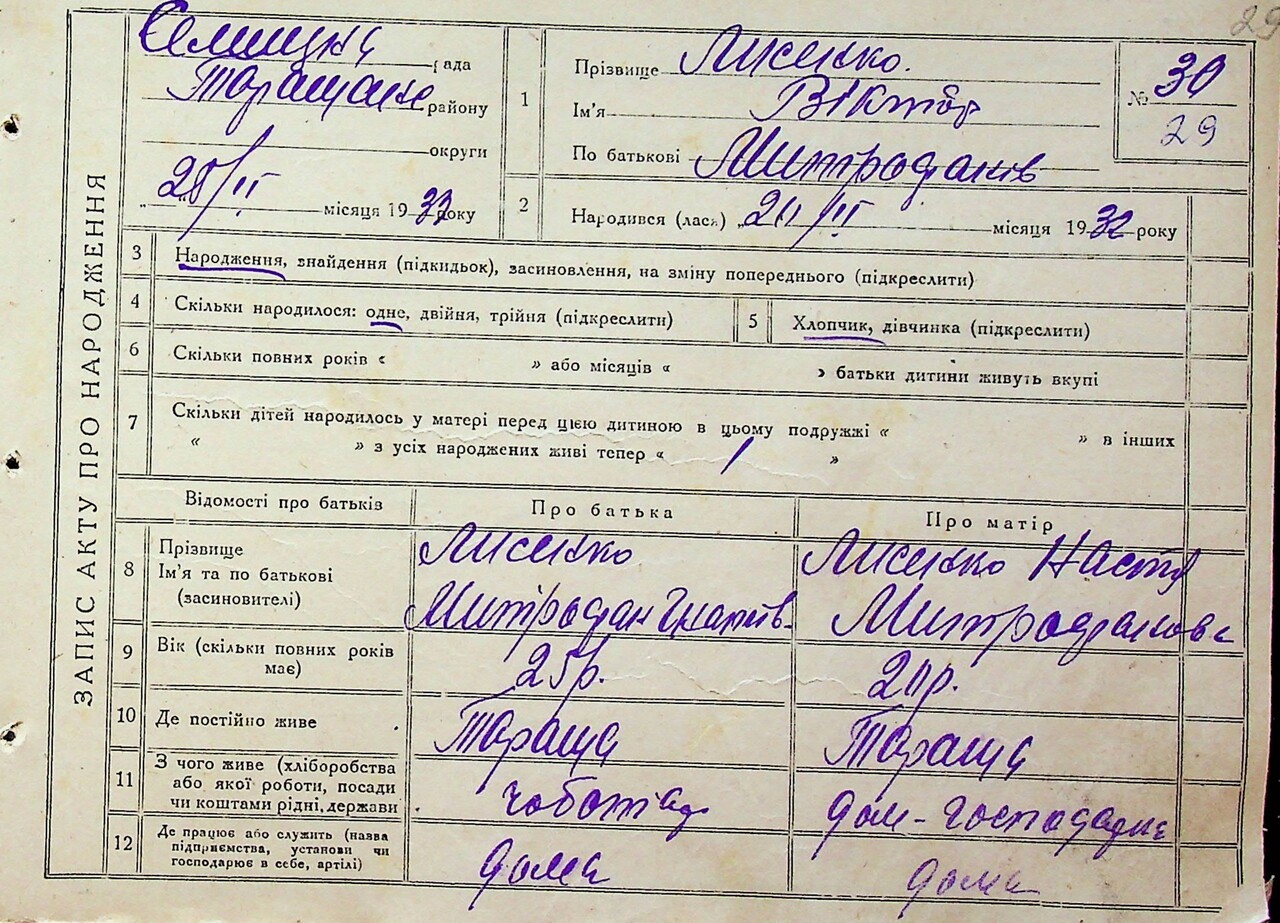 29
Селищна рада
Таращан району
округи
місяця 1933 року
1
Прізвище Лисенко.
Ім'я Віктор
По батькові Митрофанів
№ 30
29
2
Народився (лася) місяця 1932 року
ЗАПИС АКТУ ПРО НАРОДЖЕННЯ
3 Народження, знайдення (підкидьок), засиновлення, на зміну попереднього (підкреслити)
4 Скільки народилося: одне, двійня, трійня (підкреслити)
5 Хлопчик, дівчинка (підкреслити)
6 Скільки повних років « » або місяців « » батьки дитини живуть вкупі
7 Скільки дітей народилось у матері перед цією дитиною в цьому подружжі « » в інших
« » з усіх народжених живі тепер « 1 »
Відомості про батьків Про батька Про матір
8 Прізвище
Ім'я та по батькові
(засиновителі)
Лисенко
Митрофан Гнатів-
Лисенко Настя
Митрофановa
9 Вік (скільки повних років
має)
25 р.
20 р.
10 Де постійно живе
Тараща
Тараща
11 З чого живе (хліборобства
або якої роботи, посади
чи коштами рідні, держави
дом-господарка
12 Де працює або служить (назва
підприємства, установи чи
господарює в себе, артілі)
дома
дома